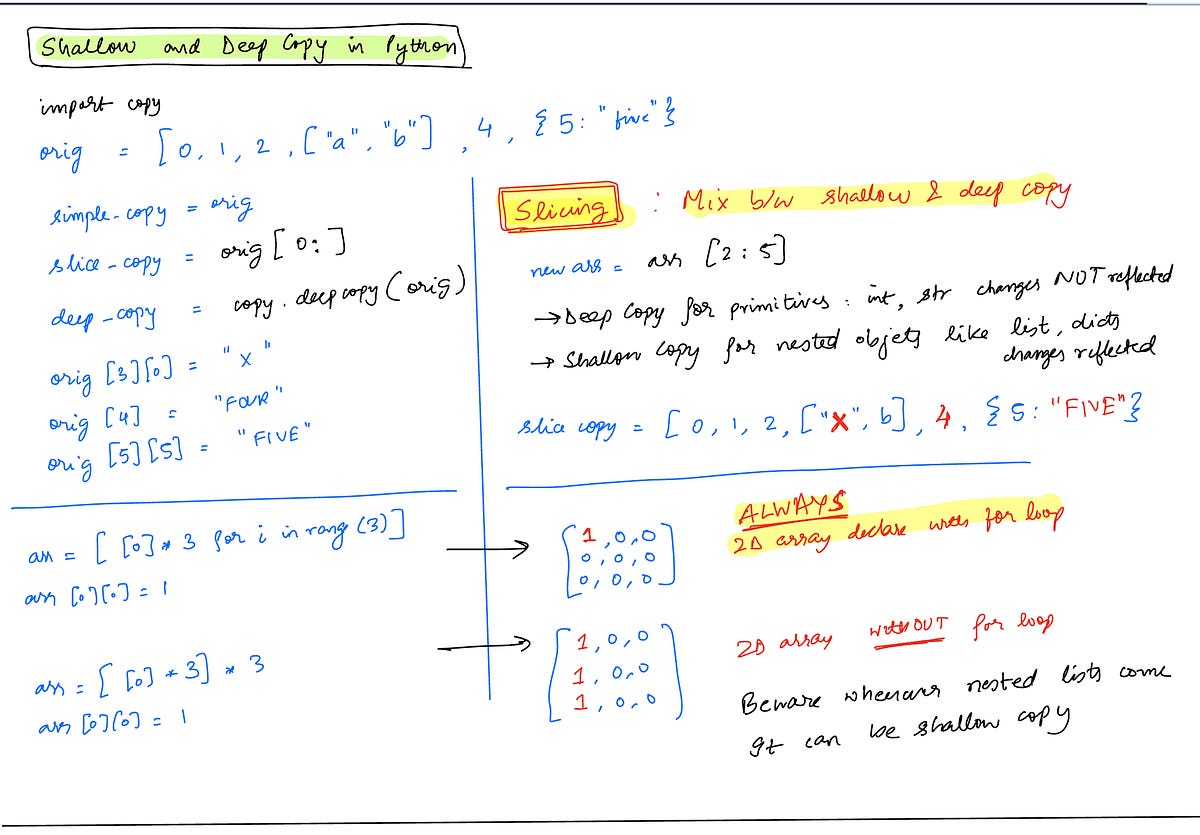 Shallow and Deep Copy in Python
import copy
orig = [0, 1, 2, ["a", "b"], 4, {5: "five"}
simple-copy = orig
slice-copy = orig[0:]
deep-copy = copy.deepcopy(orig)
orig [3][0] = "X"
orig [4] = "FOUR"
orig [5][5] = "FIVE"
Slicing : Mix b/w shallow & deep copy
new arr = arr [2:5]
→ Deep Copy for primitives: int, str changes NOT reflected
→ Shallow Copy for nested objets like list, dicts
changes reflected
slice copy = [0, 1, 2, ["X", b], 4, {5: "FIVE"}
arr = [ [0] * 3 for i in rang (3)]
arr [0][0] = 1
[1, 0, 0
0, 0, 0
0, 0, 0]
ALWAYS
2D array declare with for loop
arr = [ [0] * 3] * 3
arr [0][0] = 1
[1, 0, 0
1, 0, 0
1, 0, 0]
2D array WITHOUT for loop
Beware whenever nested lists come
It can be shallow copy